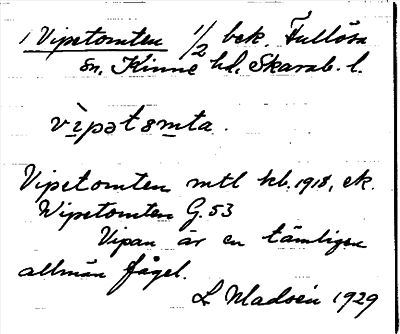 1 Vipetomten 1/2 bek. Fullösa
sn. Kinne hd. Skarab. l.
vìpətɷmta.
Vipetomten mtl kb. 1918, ek.
Wipetomten G. 53
Vipan är en tämligen
allmän fågel.
L. Madsén 1929